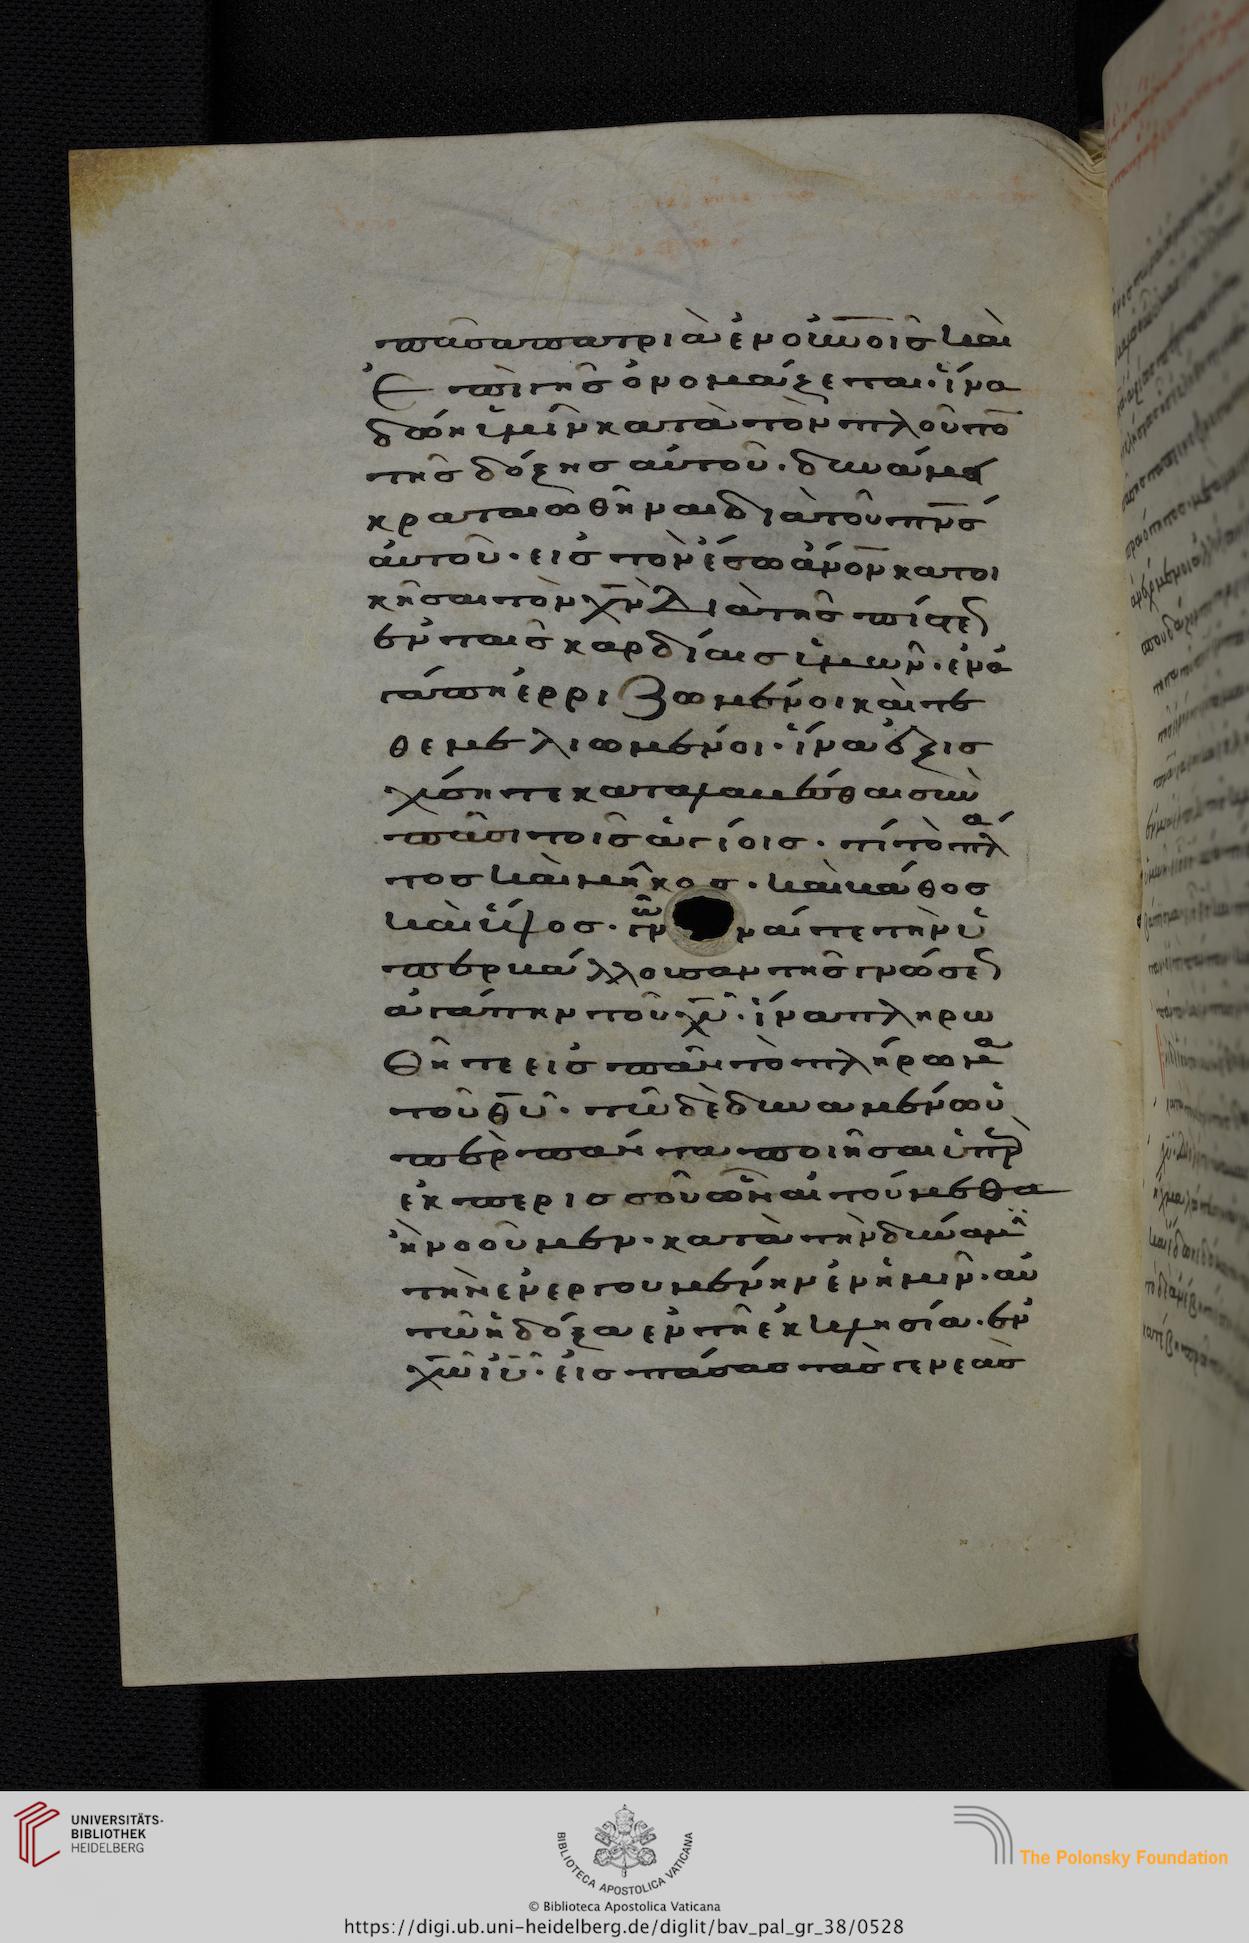 πᾶσα πατριὰ ἐν οὐνοις καὶ
ἐπὶ γῆς ὀνομάζεται· ἵνα
δώη ὑμῖν κατὰ τὸν πλοῦτο
τῆς δόξης αὐτοῦ· δυνάμει
κραταιωθῆναι διὰ τοῦ πνς
αὐτοῦ· εἰς τὸν ἔσω ἄνον κατοι
κῆσαι τὸν χν διὰ τῆς πίστεως
ἐν ταῖς καρδίαις ὑμῶν· ἐν ἀ
γάπη ἐρριζωμένοι καὶ τε
θεμελιωμένοι· ἵνα ἐξισ
χύσητε καταλαβέσθαι σὺν
πᾶσι τοῖς ἁγίοις· τί τὸ πλά
τος καὶ μῆκος· καὶ βάθος
καὶ ὕψος· γνῶναί τε τὴν ὑ
περβάλλουσαν τῆς γνώσεως
ἀγάπην τοῦ χυ· ἵνα πληρω
θῆτε εἰς πᾶν τὸ πλήρωμα
τοῦ θυ· τῶ δὲ δυναμένω ὑ
πὲρ πάντα ποιῆσαι ὑπὲρ
ἐκ περισσοῦ ὧν αἰτούμεθα
ἢ νοοῦμεν· κατὰ τὴν δύναμιν
τὴν ἐνεργουμένην ἐν ἡμῖν· αὐ
τῶ ἡ δόξα ἐν τῆ ἐκκλησία· ἐν
χω ιυ· εἰς πάσας τὰς γενεὰς
UNIVERSITÄTS-
BIBLIOTHEK
HEIDELBERG
BIBLIOTECA APOSTOLICA VATICANA
The Polonsky Foundation
© Biblioteca Apostolica Vaticana
https://digi.ub.uni-heidelberg.de/diglit/bav_pal_gr_38/0528